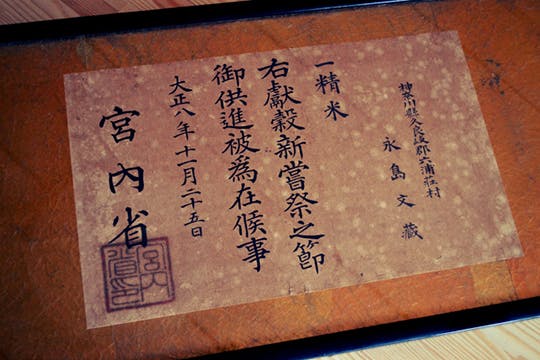 神奈川縣久良岐郡六浦莊村
永島文藏
一精米
右獻穀新嘗祭之節
御供進被為在候事
大正八年十一月二十五日
宮內省
宮內省印